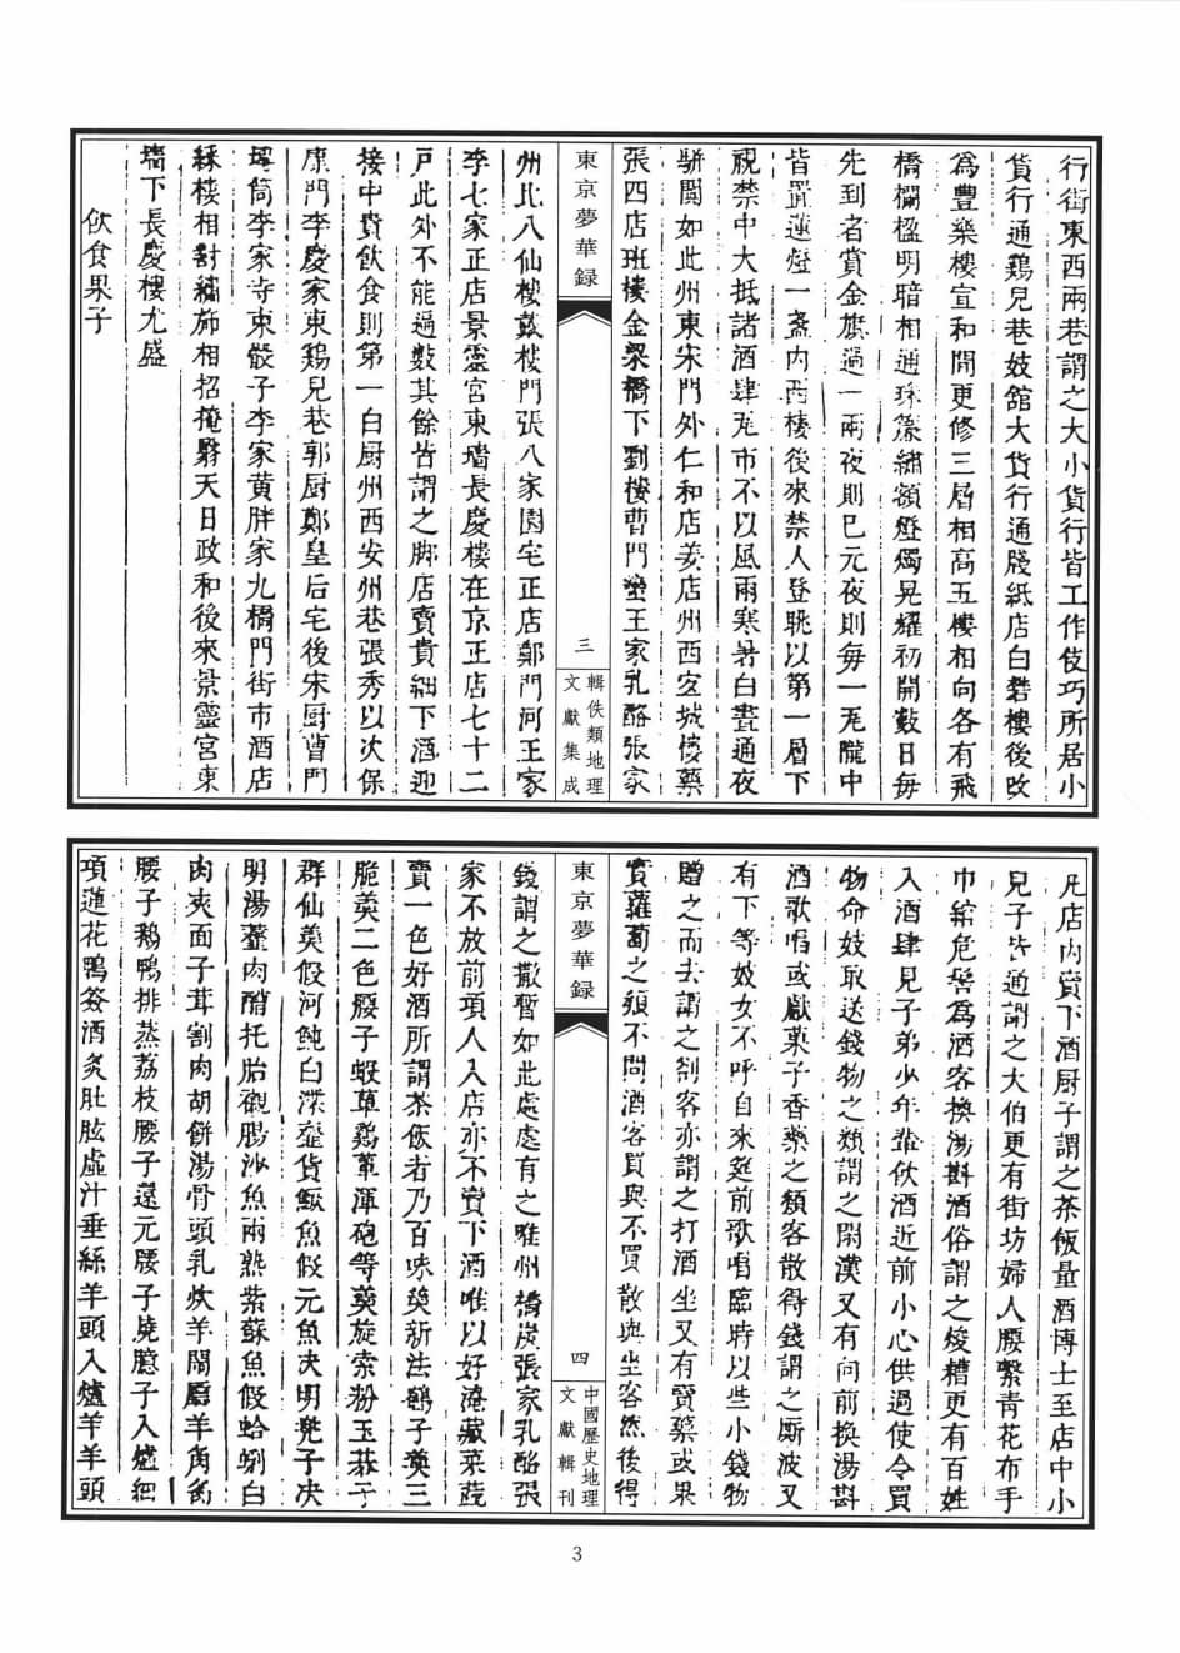 行街東西兩巷謂之大小貨行皆工作伎巧所居小
貨行通鷄兒巷妓館大貨行通牋紙店白礬樓後改
爲豐樂樓宣和間更修三層相高五樓相向各有飛
橋欄檻明暗相通珠簾繡額燈燭晃耀初開數日每
先到者賞金旗過一兩夜則已元夜則每一瓦隴中
皆置蓮燈一盞內西樓後來禁人登眺以第一層下
視禁中大抵諸酒肆瓦市不以風雨寒暑白晝通夜
駢闐如此州東宋門外仁和店姜店州西宜城樓藥
張四店班樓金梁橋下劉樓曹門蠻王家乳酪張家
東京夢華録
三
輯佚類地理
文獻集成
州北八仙樓戴樓門張八家園宅正店鄭門河王家
李七家正店景靈宮東墻長慶樓在京正店七十二
戶此外不能遍數其餘皆謂之脚店賣貴細下酒迎
接中貴飲食則第一白厨州西安州巷張秀以次保
康門李慶家東鷄兒巷郭厨鄭皇后宅後宋厨曹門
塼筒李家寺東骰子李家黄胖家九橋門街市酒店
綵樓相對繡旆相招掩翳天日政和後來景靈宮東
墻下長慶樓尤盛
飲食果子
凡店內賣下酒厨子謂之茶飯量酒博士至店中小
兒子皆通謂之大伯更有街坊婦人腰繫青花布手
巾綰危髻爲酒客換湯斟酒俗謂之焌糟更有百姓
入酒肆見子弟少年輩飲酒近前小心供過使令買
物命妓取送錢物之類謂之閑漢又有向前換湯斟
酒歌唱或獻菓子香藥之類客散得錢謂之厮波又
有下等妓女不呼自來筵前歌唱臨時以些小錢物
贈之而去謂之劄客亦謂之打酒坐又有賣藥或果
實蘿蔔之類不問酒客買與不買散與坐客然後得
東京夢華録
四
中國歷史地理
文獻輯刊
錢謂之撒暫如此處處有之唯州橋炭張家乳酪張
家不放前項人入店亦不賣下酒唯以好淹藏菜蔬
賣一色好酒所謂茶飯者乃百味羹新法鵪子羹三
脆羹二色腰子蝦蕈鷄蕈渾砲等羹旋索粉玉碁子
群仙羹假河魨白渫虀貨鱖魚假元魚决明兜子决
明湯虀肉醋托胎襯腸沙魚兩熟紫蘇魚假蛤蜊白
肉夾面子茸割肉胡餅湯骨頭乳炊羊閙廳羊角炙
腰子鵝鴨排蒸荔枝腰子還元腰子燒臆子入爐細
項蓮花鴨簽酒炙肚胘虛汁垂絲羊頭入爐羊羊頭
3